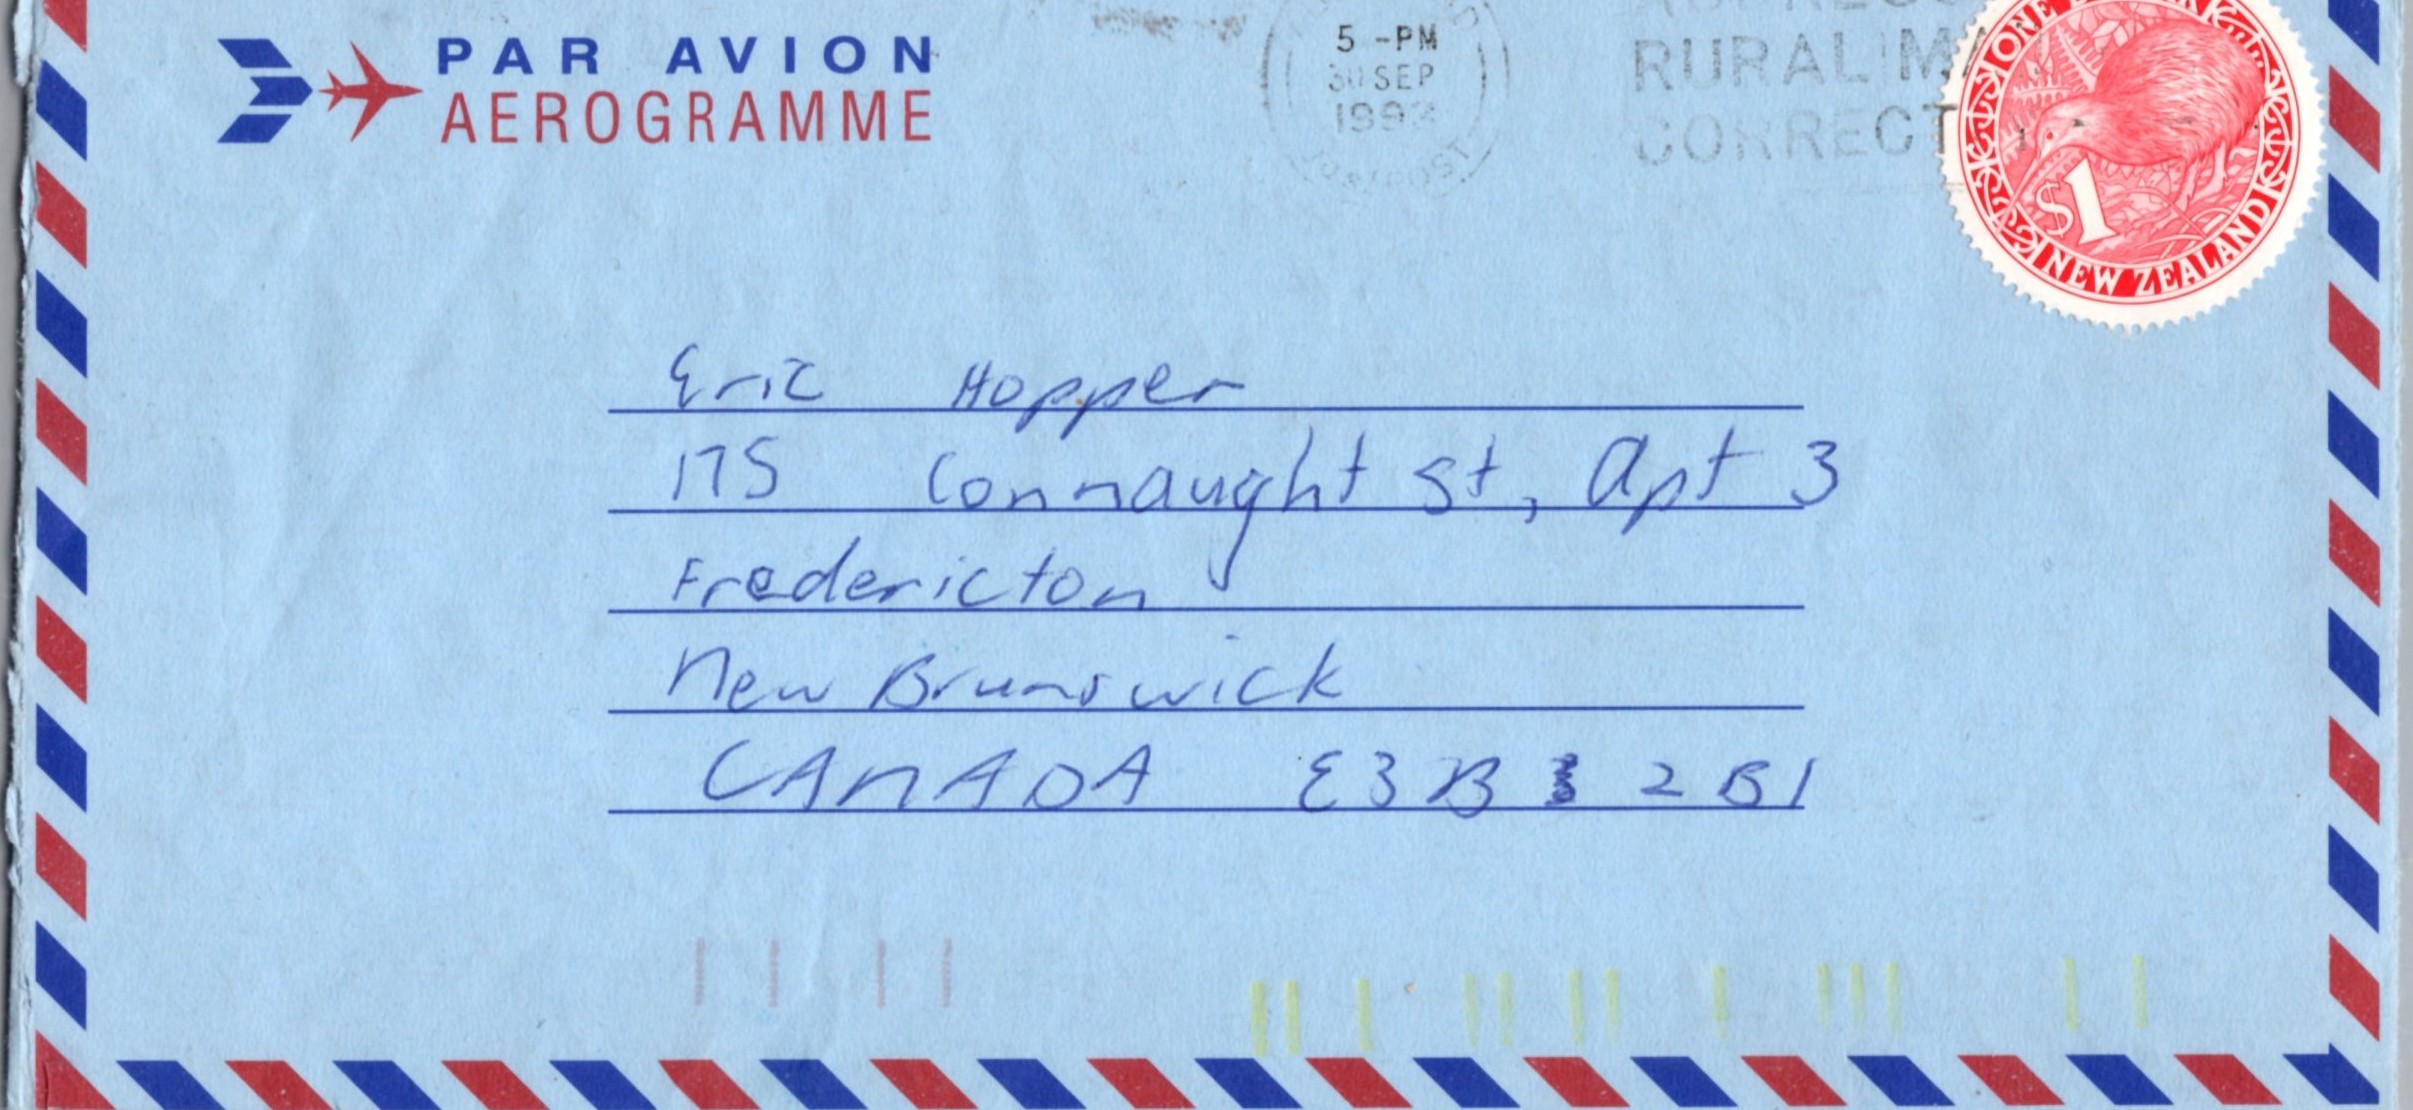 PAR AVION
AEROGRAMME
5 -PM
30 SEP
RURAL MA
CORRECT
ONE
$1
NEW ZEALAND
Eric Hopper
175 Connaught St, Apt 3
Fredericton
New Brunswick
CANADA E3B 2B1